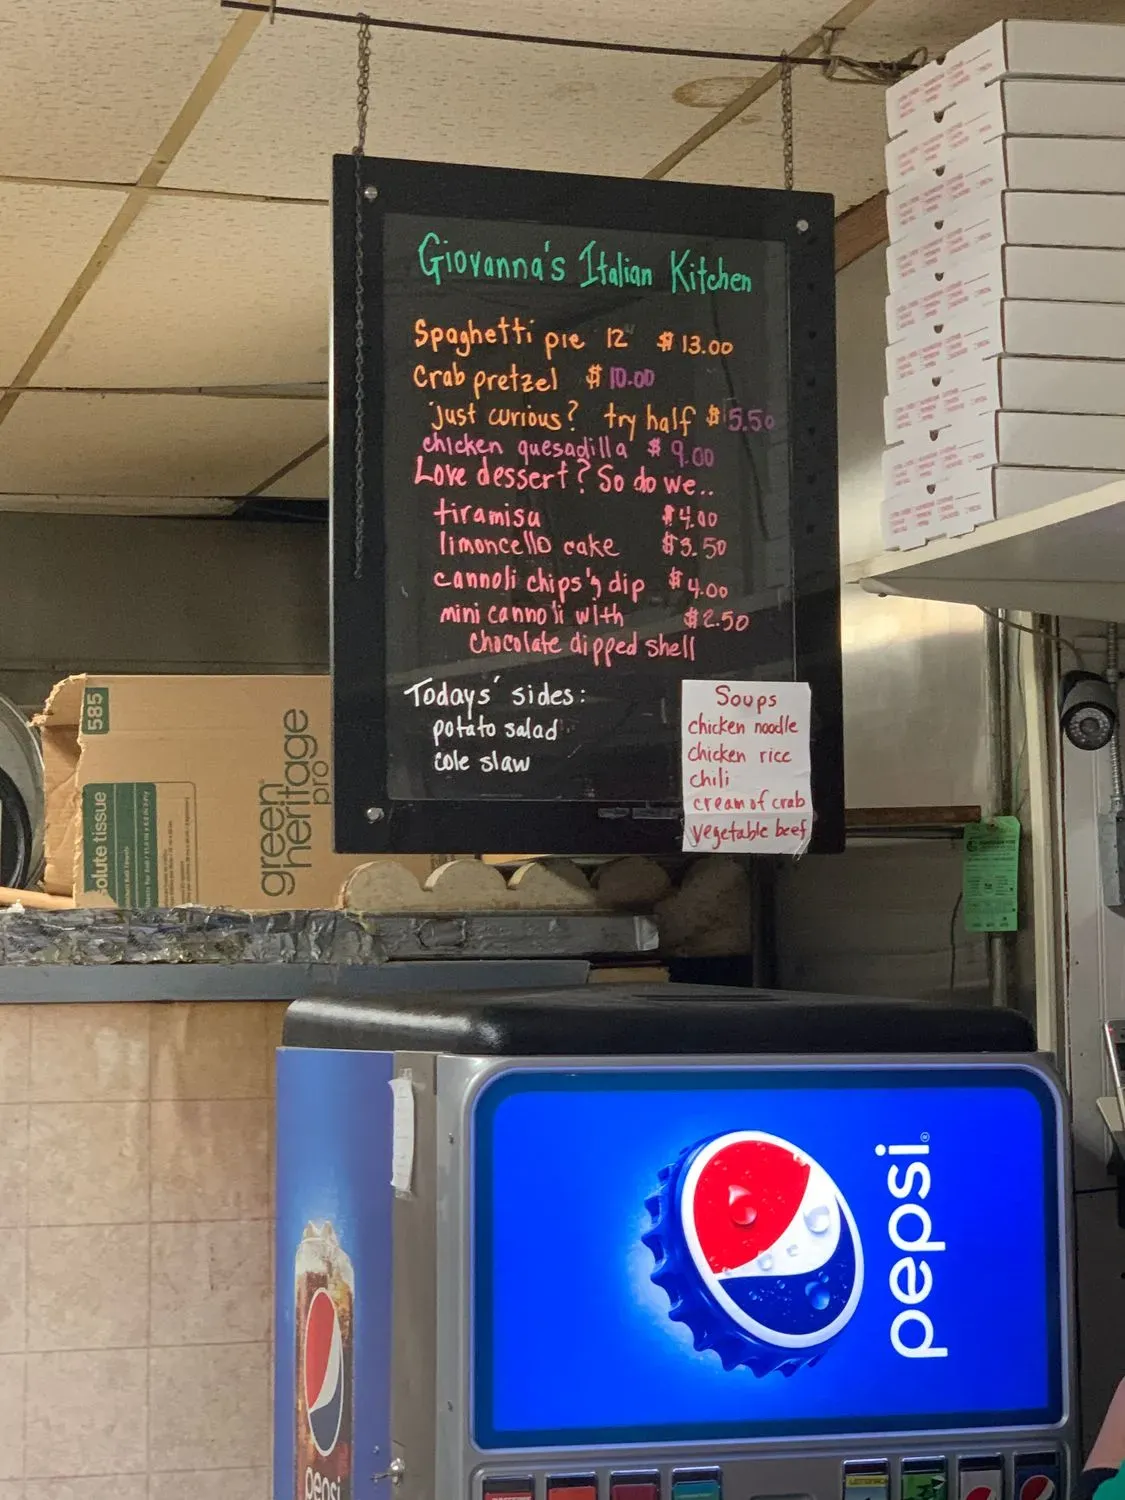 Giovanna's Italian Kitchen
Spaghetti pie 12" $13.00
Crab pretzel $10.00
just curious? try half $5.50
chicken quesadilla $9.00
Love dessert? So do we..
tiramisu $4.00
limoncello cake $3.50
cannoli chips 'n dip $4.00
mini cannoli with $2.50
chocolate dipped shell
Todays' sides:
potato salad
cole slaw
Soups
chicken noodle
chicken rice
chili
cream of crab
vegetable beef
585
green heritage®
pro
olute tissue
pepsi®
pepsi